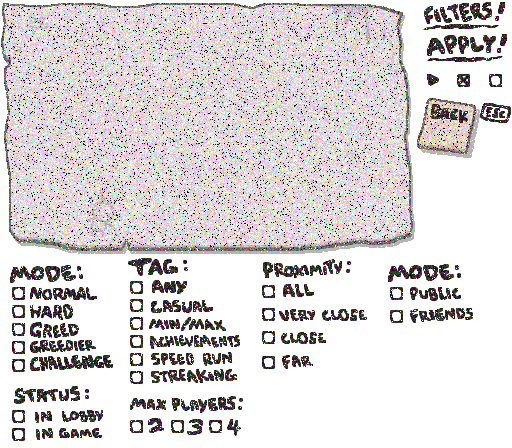 FILTERS!
APPLY!
BACK ESC
MODE:
NORMAL
HARD
GREED
GREEDIER
CHALLENGE
STATUS:
IN LOBBY
IN GAME
TAG:
ANY
CASUAL
MIN/MAX
ACHIEVEMENTS
SPEED RUN
STREAKING
MAX PLAYERS:
2 3 4
PROXIMITY:
ALL
VERY CLOSE
CLOSE
FAR
MODE:
PUBLIC
FRIENDS